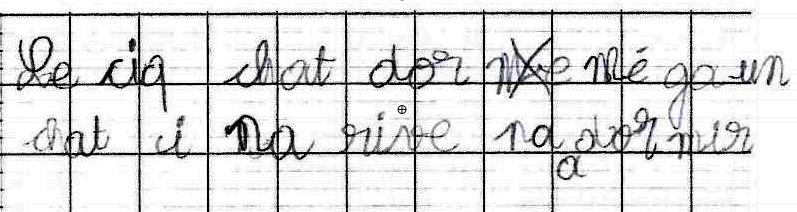 Le ciq chat dor me mé ga un
chat i na rive na a dormir